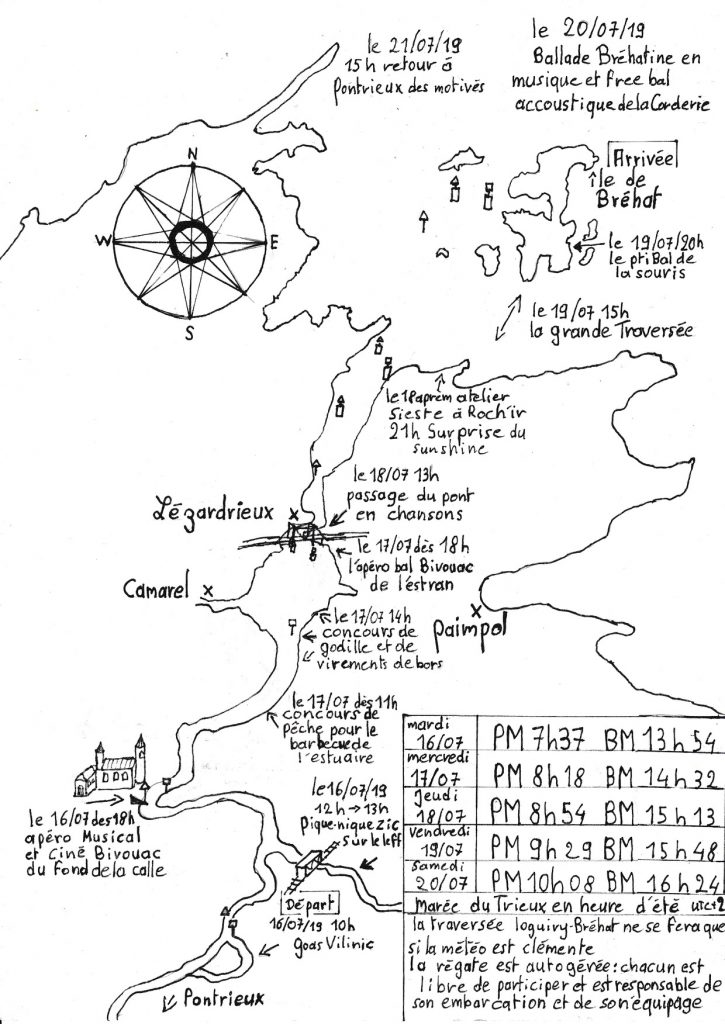 le 20/07/19
Ballade Bréhatine en
musique et free bal
accoustique de la Corderie
le 21/07/19
15h retour à
Pontrieux des motivés
N
W
E
S
Arrivée
île de
Bréhat
le 19/07/20h
le ptiBal de
la souris
le 19/07 15h
la grande Traversée
le 18 aprèm atelier
Sieste à Roch'ir
21h Surprise du
sunshine
le 18/07 13h
passage du pont
en chansons
Lézardrieux
le 17/07 dès 18h
l'apéro bal Bivouac
de l'estran
Camarel
le 17/07 14h
concours de
godille et de
virements de bors
Paimpol
le 17/07 dès 11h
concours de
pêche pour le
barbecue de
l'estuaire
le 16/07 des 18h
apéro Musical
et Ciné Bivouac
du Fond de la calle
le 16/07/19
12h → 13h
Pique-nique Zic
sur le leff
Départ
16/07/19 10h
goas Vilinic
Pontrieux
mardi
16/07 PM 7h37 BM 13h54
mercredi
17/07 PM 8h18 BM 14h32
jeudi
18/07 PM 8h54 BM 15h13
vendredi
19/07 PM 9h29 BM 15h48
samedi
20/07 PM 10h08 BM 16h24
Marée du Trieux en heure d'été UTC+2
la traversée loguivy-Bréhat ne se fera que
si la météo est clémente
la régate est autogérée: chacun est
libre de participer et est responsable de
son embarcation et de son équipage